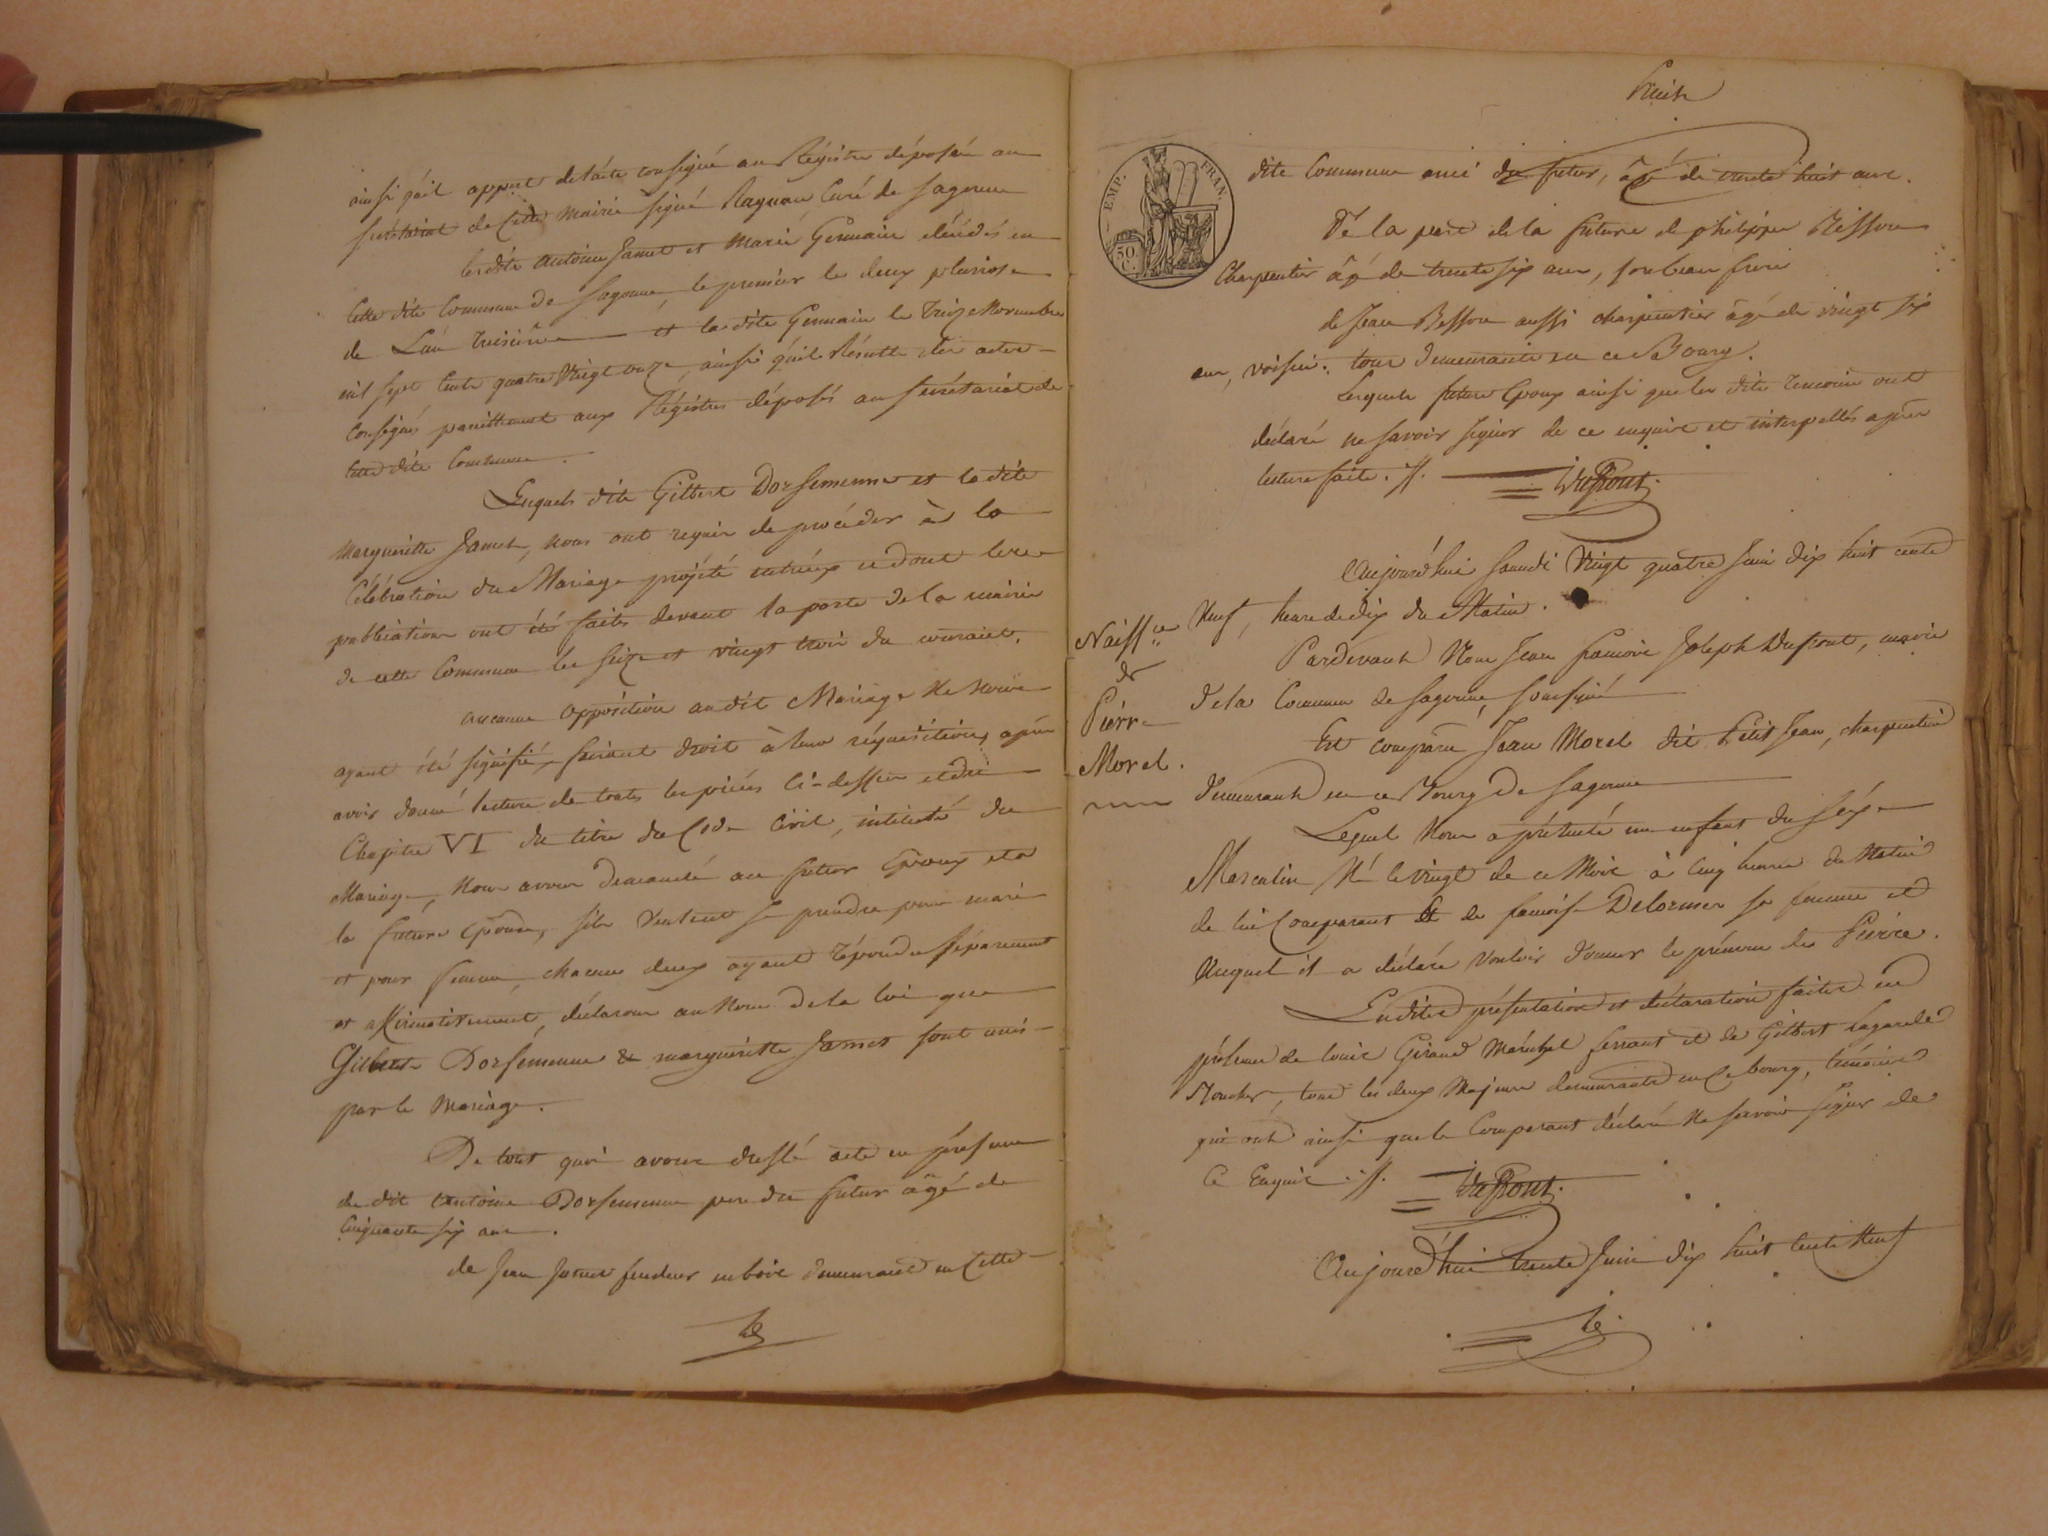 ainsi qu'il appert de l'acte consigné au Régistre déposé au
secrétariat de cette mairie signé Raynau Curé de Sagonne
les dits Antoine Jamet et Marie Germain décédés en
cette dite Commune de Sagonne, le premier le deux pluviose
de L'an troisième et la dite Germain le treize Novembre
mil sept cents quatre Vingt onze, ainsi qu'il Résulte des actes
consignés pareillement aux Régistres déposés au secrétariat de
cette dite Commune.
Lesquels dits Gilbert Dorsemenne et la dite
Margueritte Jamet, nous ont requis de procéder à la
Célébration du Mariage projété entr'eux et dont les
publications ont été faites devant la porte de la mairie
de cette Commune les seize et vingt trois du courant.
aucune opposition audit Mariage Ne Nous
ayant été signifié, faisant droit à leur réquisition, après
avoir donné lecture de toutes les pièces ci-dessus et du
Chapitre VI du titre du Code Civil, intitulé du
Mariage, Nous avons demandé au futur Epoux et à
la future Epouse, s'ils veulent se prendre pour mari
et pour femme, chacun deux ayant répondu séparement
et affirmativement, déclarons au Nom de la loi que
Gilbert Dorsemenne & margueritte Jamet sont unis
par le Mariage.
De tout quoi avons dressé acte en présence
du dit Antoine Dorsemenne pere du futur âgé de
Cinquante six ans.
de Jean Jamet fendeur en bois demeurant en Cette
huit
EMP. FRAN.
50 C.
dite Commune ami du futur, âgé de trente huit ans.
De la part de la future de philippe Besson
Charpentier âgé de trente six ans, son beau frere
de Jean Besson aussi charpentier âgé de vingt six
ans, voisin. tous demeurants en ce Bourg.
Lesquels futurs Epoux ainsi que les dits temoins ont
déclaré ne savoir signer de ce enquis et interpellés après
lecture faite. //. Dufront.
Aujourd'hui Samedi Vingt quatre Juin dix huit cents
Neuf, heure de dix du Matin.
Naiss.ce
de
Pierre
Morel.
Pardevant Nous Jean françois Joseph Dufront, maire
de la Commune de Sagonne, soussigné
Est comparu Jean Morel dit Petit Jean, charpentier
demeurant en ce Bourg de Sagonne
Lequel Nous a présenté un enfant du séxe
Masculin Né le vingt de ce Mois à cinq heures du Matin
de lui Comparant Et de françoise Delormes sa femme et
Auquel il a déclaré vouloir donner le prénom de Pierre.
Lesdites présentation et déclaration faites en
présence de louis Giraud Maréchal ferrant et de Gilbert Lagarde
tous les deux Majeurs demeurants en ce bourg, témoins
qui ont ainsi que le Comparant déclaré Ne savoir signer de
Ce Enquis. //. Dufront.
Aujourd'hui trente Juin dix huit cents Neuf